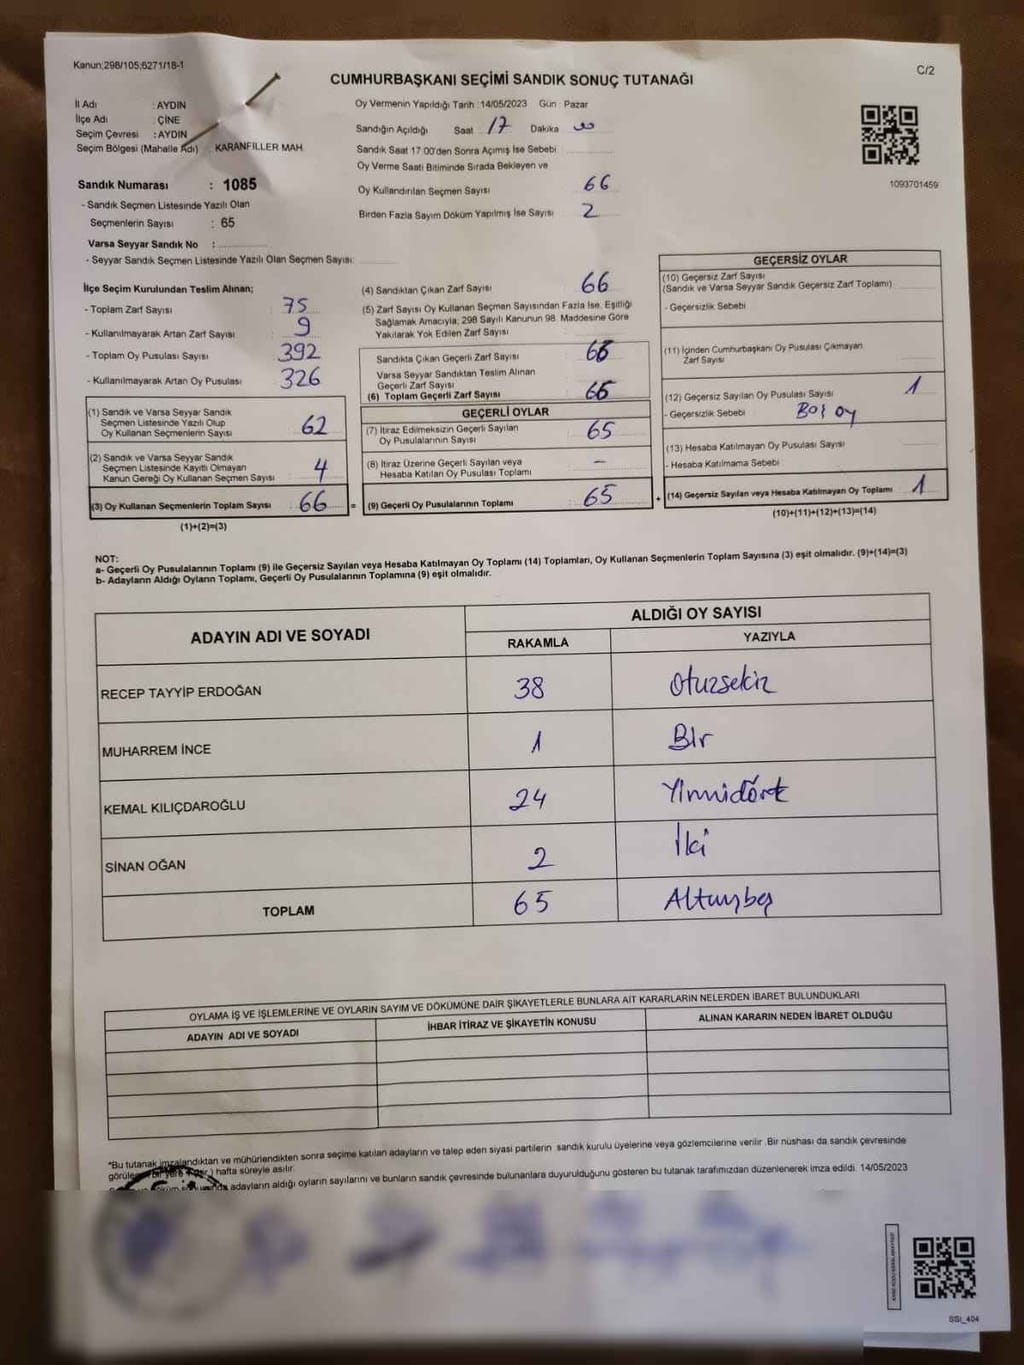 Kanun;298/105;6271/18-1
C/2
CUMHURBAŞKANI SEÇİMİ SANDIK SONUÇ TUTANAĞI
İl Adı : AYDIN
İlçe Adı : ÇİNE
Seçim Çevresi : AYDIN
Seçim Bölgesi (Mahalle Adı) : KARANFİLLER MAH.
Sandık Numarası : 1085
- Sandık Seçmen Listesinde Yazılı Olan
Seçmenlerin Sayısı : 65
Varsa Seyyar Sandık No :
- Seyyar Sandık Seçmen Listesinde Yazılı Olan Seçmen Sayısı:
Oy Vermenin Yapıldığı Tarih :14/05/2023 Gün : Pazar
Sandığın Açıldığı Saat 17 Dakika 00
Sandık Saat 17:00'den Sonra Açımış İse Sebebi
Oy Verme Saati Bitiminde Sırada Bekleyen ve
Oy Kullandırılan Seçmen Sayısı 66
Birden Fazla Sayım Döküm Yapılmış İse Sayısı 2
1093701459
İlçe Seçim Kurulundan Teslim Alınan;
- Toplam Zarf Sayısı : 75
- Kullanılmayarak Artan Zarf Sayısı : 9
- Toplam Oy Pusulası Sayısı : 392
- Kullanılmayarak Artan Oy Pusulası : 326
(1) Sandık ve Varsa Seyyar Sandık
Seçmen Listesinde Yazılı Olup
Oy Kullanan Seçmenlerin Sayısı : 62
(2) Sandık ve Varsa Seyyar Sandık
Seçmen Listesinde Kayıtlı Olmayan
Kanun Gereği Oy Kullanan Seçmen Sayısı : 4
(3) Oy Kullanan Seçmenlerin Toplam Sayısı : 66
(1)+(2)=(3)
=
(4) Sandıktan Çıkan Zarf Sayısı : 66
(5) Zarf Sayısı Oy Kullanan Seçmen Sayısından Fazla İse, Eşitliği
Sağlamak Amacıyla; 298 Sayılı Kanunun 98. Maddesine Göre
Yakılarak Yok Edilen Zarf Sayısı :
Sandıkta Çıkan Geçerli Zarf Sayısı : 66
Varsa Seyyar Sandıktan Teslim Alınan
Geçerli Zarf Sayısı :
(6) Toplam Geçerli Zarf Sayısı : 66
GEÇERLİ OYLAR
(7) İtiraz Edilmeksizin Geçerli Sayılan
Oy Pusulalarının Sayısı : 65
(8) İtiraz Üzerine Geçerli Sayılan veya
Hesaba Katılan Oy Pusulası Toplamı : –
(9) Geçerli Oy Pusulalarının Toplamı : 65
+
GEÇERSİZ OYLAR
(10) Geçersiz Zarf Sayısı
(Sandık ve Varsa Seyyar Sandık Geçersiz Zarf Toplamı)
- Geçersizlik Sebebi
(11) İçinden Cumhurbaşkanı Oy Pusulası Çıkmayan
Zarf Sayısı
(12) Geçersiz Sayılan Oy Pusulası Sayısı 1
- Geçersizlik Sebebi : Boş oy
(13) Hesaba Katılmayan Oy Pusulası Sayısı
- Hesaba Katılmama Sebebi
(14) Geçersiz Sayılan veya Hesaba Katılmayan Oy Toplamı : 1
(10)+(11)+(12)+(13)=(14)
NOT:
a- Geçerli Oy Pusulalarının Toplamı (9) ile Geçersiz Sayılan veya Hesaba Katılmayan Oy Toplamı (14) Toplamları, Oy Kullanan Seçmenlerin Toplam Sayısına (3) eşit olmalıdır. (9)+(14)=(3)
b- Adayların Aldığı Oyların Toplamı, Geçerli Oy Pusulalarının Toplamına (9) eşit olmalıdır.
ADAYIN ADI VE SOYADI
ALDIĞI OY SAYISI
RAKAMLA YAZIYLA
RECEP TAYYİP ERDOĞAN 38 otuzsekiz
MUHARREM İNCE 1 Bir
KEMAL KILIÇDAROĞLU 24 Yirmidört
SİNAN OĞAN 2 İki
TOPLAM 65 Altmışbeş
OYLAMA İŞ VE İŞLEMLERİNE VE OYLARIN SAYIM VE DÖKÜMÜNE DAİR ŞİKAYETLERLE BUNLARA AİT KARARLARIN NELERDEN İBARET BULUNDUKLARI
ADAYIN ADI VE SOYADI İHBAR İTİRAZ VE ŞİKAYETİN KONUSU ALINAN KARARIN NEDEN İBARET OLDUĞU
*Bu tutanak imzalandıktan ve mühürlendikten sonra seçime katılan adayların ve talep eden siyasi partilerin sandık kurulu üyelerine veya gözlemcilerine verilir. Bir nüshası da sandık çevresinde
hafta süreyle asılır.
adayların aldığı oyların sayılarını ve bunların sandık çevresinde bulunanlara duyurulduğunu gösteren bu tutanak tarafımızdan düzenlenerek imza edildi. 14/05/2023
SSİ_404